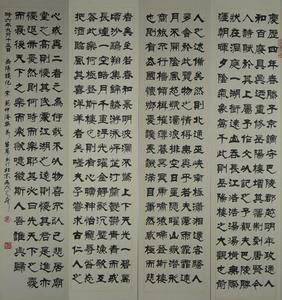 慶曆四年春滕子京謫守巴陵郡越明年政通人
和百廢具興乃重修岳陽樓增其舊制刻唐賢今
人詩賦於其上屬予作文以記之予觀夫巴陵勝
狀在洞庭一湖銜遠山吞長江浩浩湯湯橫無際
涯朝暉夕陰氣象萬千此則岳陽樓之大觀也前
人之述備矣然則北通巫峽南極瀟湘遷客騷人
多會於此覽物之情得無異乎若夫霪雨霏霏連
月不開陰風怒號濁浪排空日星隱耀山岳潛形
商旅不行檣傾楫摧薄暮冥冥虎嘯猿啼登斯樓
也則有去國懷鄉憂讒畏譏滿目蕭然感極而悲
者矣至若春和景明波瀾不驚上下天光一碧萬
頃沙鷗翔集錦鱗游泳岸芷汀蘭郁郁青青而或
長煙一空皓月千里浮光躍金靜影沉璧漁歌互
答此樂何極登斯樓也則有心曠神怡寵辱偕忘
把酒臨風其喜洋洋者矣嗟夫予嘗求古仁人之
心或異二者之為何哉不以物喜不以己悲居廟
堂之高則憂其民處江湖之遠則憂其君是進亦
憂退亦憂然則何時而樂耶其必曰先天下之
憂而憂後天下之樂而樂乎噫微斯人吾誰與歸
時六年九月十五日 岳陽樓記 宋 范仲淹